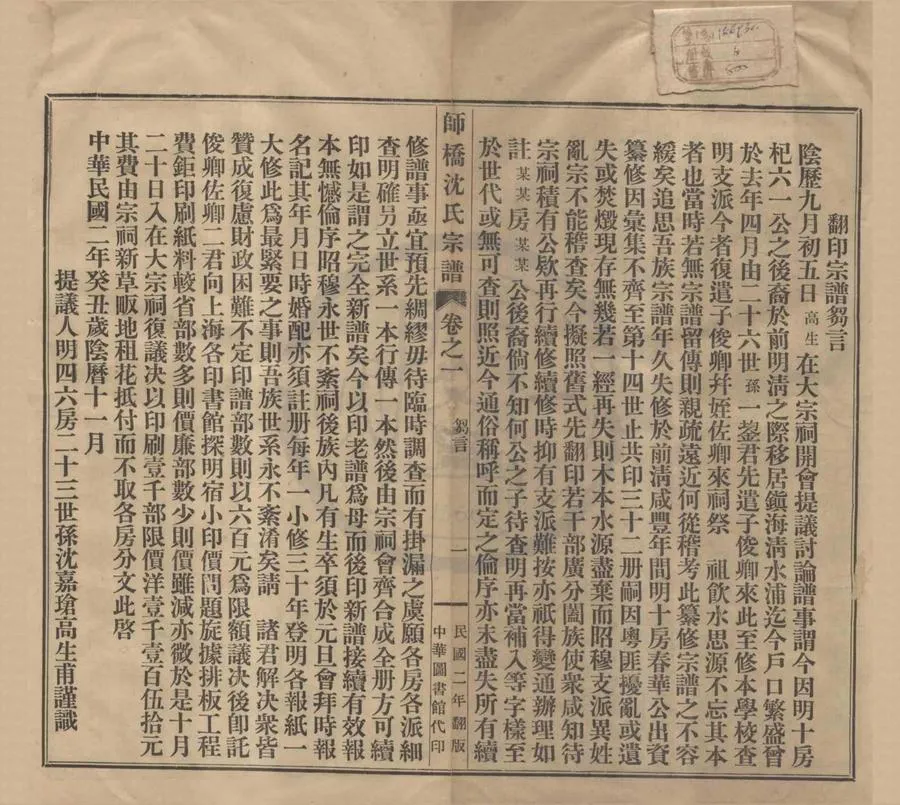 翻印宗譜芻言
陰歷九月初五日高生在大宗祠開會提議討論譜事謂今因明十房
杞六一公之後裔於前明淸之際移居鎭海淸水浦迄今戶口繁盛曾
於去年四月由二十六世孫一鋆君先遣子俊卿來此至修本學校查
明支派今者復遣子俊卿幷姪佐卿來祠祭 祖飮水思源不忘其本
者也當時若無宗譜留傳則親疏遠近何從稽考此纂修宗譜之不容
緩矣追思吾族宗譜年久失修於前淸咸豐年間明十房春華公出資
纂修因彙集不齊至第十四世止共印三十二册嗣因粵匪擾亂或遺
失或焚燬現存無幾若一經再失則木本水源盡棄而昭穆支派異姓
亂宗不能稽查矣今擬照舊式先翻印若干部廣分闔族使衆咸知待
宗祠積有公欵再行續修續修時抑有支派難按亦祇得變通辦理如
註某某房某某公後裔倘不知何公之子待查明再當補入等字樣至
於世代或無可查則照近今通俗稱呼而定之倫序亦未盡失所有續
師橋沈氏宗譜 卷之一 芻言 一 民國二年翻版 中華圖書館代印
修譜事亟宜預先綢繆毋待臨時調查而有掛漏之虞願各房各派細
查明確另立世系一本行傳一本然後由宗祠會齊合成全册方可續
印如是謂之完全新譜矣今以印老譜爲母而後印新譜接續有效報
本無憾倫序昭穆永世不紊祠後族內凡有生卒須於元旦會拜時報
名記其年月日時婚配亦須註册每年一小修三十年登明各報紙一
大修此爲最緊要之事則吾族世系永不紊淆矣請 諸君解决衆皆
贊成復慮財政困難不定印譜部數則以六百元爲限額議决後卽託
俊卿佐卿二君向上海各印書館探明宿小印價問題旋據排板工程
費鉅印刷紙料較省部數多則價廉部數少則價雖減亦微於是十月
二十日入在大宗祠復議决以印刷壹千部限價洋壹千壹百伍拾元
其費由宗祠新草畈地租花抵付而不取各房分文此啓
中華民國二年癸丑歲陰曆十一月
提議人明四六房二十三世孫沈嘉瑲高生甫謹識